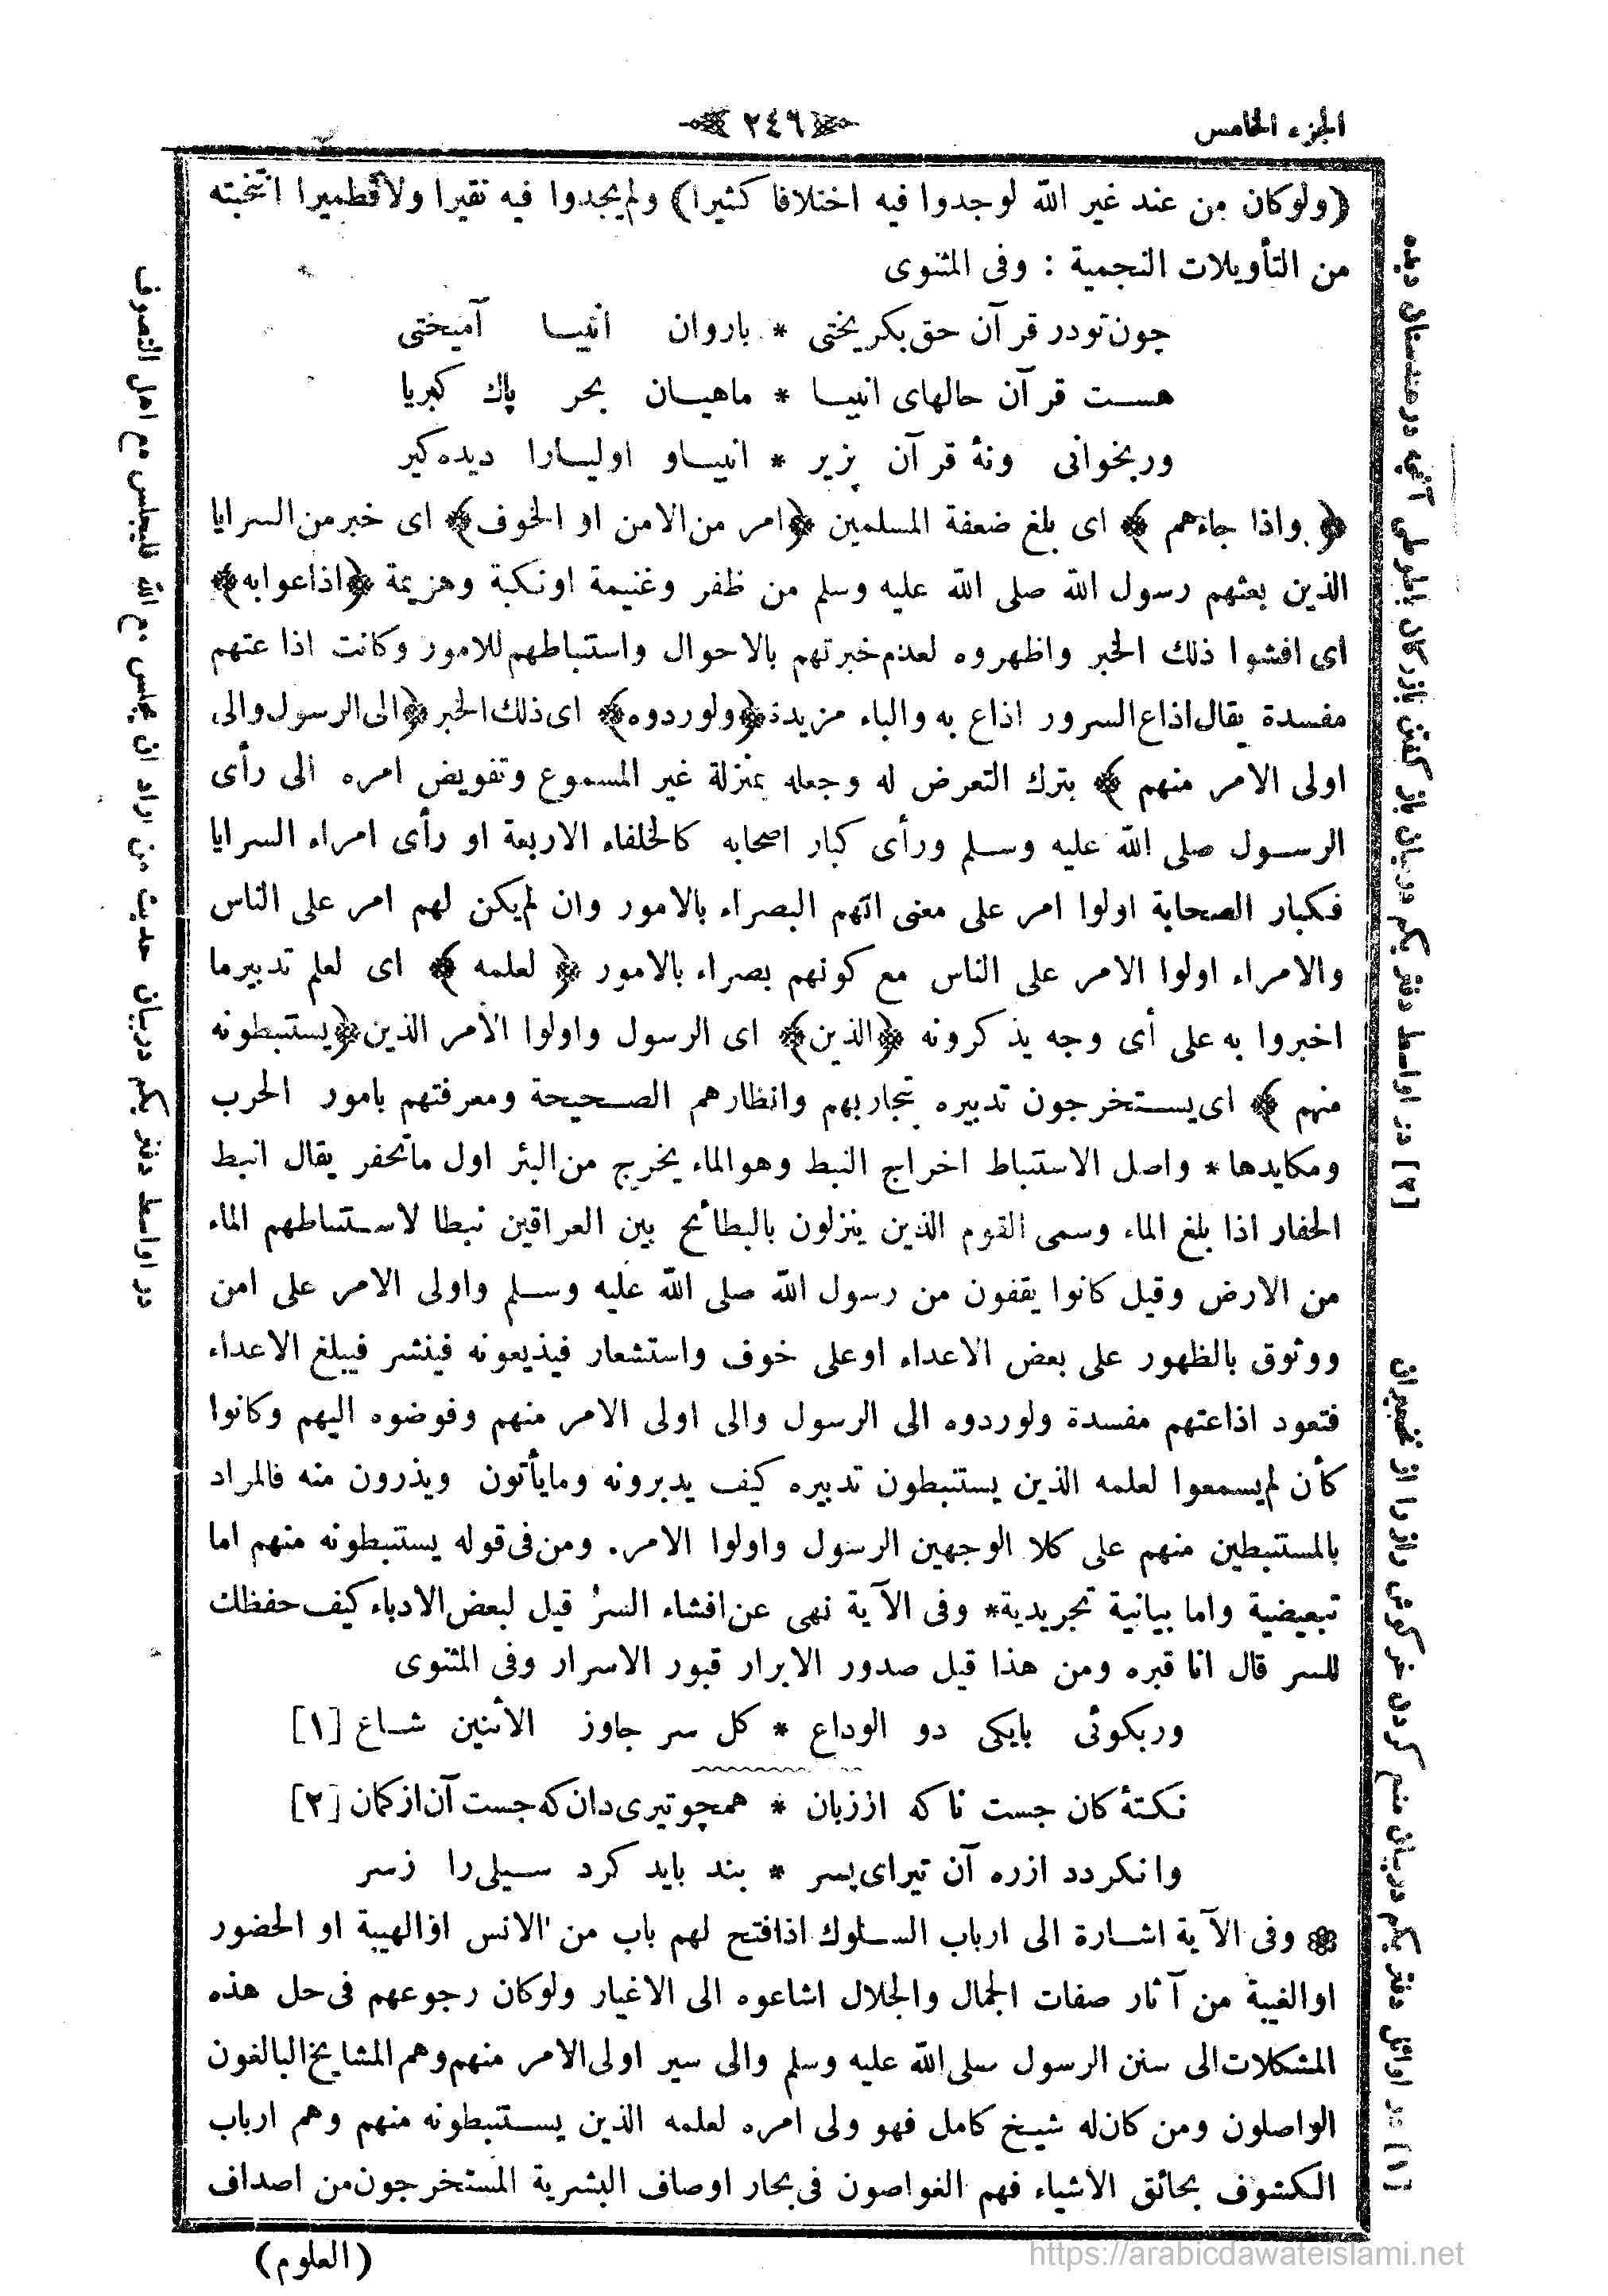 الجزء الخامس
﴿ ٢٤٦ ﴾
(ولوكان من عند غير الله لوجدوا فيه اختلافا كثيرا) ولم يجدوا فيه نقيرا ولا قطميرا انتخبته
من التأويلات النجمية : وفى المثنوى
چون تو در قرآن حق بكريختى * باروان انبيا آميختى
هست قرآن حالهاى انبيا * ماهيان بحر پاك كبريا
وربخوانى ونۀ قرآن پزير * انبياو اوليارا ديده كير
﴿ واذا جاءهم ﴾ اى بلغ ضعفة المسلمين ﴿امر من الامن او الخوف﴾ اى خبر من السرايا
الذين بعثهم رسول الله صلى الله عليه وسلم من ظفر وغنيمة اونكبة وهزيمة ﴿اذاعوابه﴾
اى افشوا ذلك الخبر واظهروه لعدم خبرتهم بالاحوال واستباطهم للامور وكانت اذاعتهم
مفسدة يقال اذاع السرور اذاع به والباء مزيدة ﴿ولوردوه﴾ اى ذلك الخبر ﴿الى الرسول والى
اولى الامر منهم ﴾ بترك التعرض له وجعله بمنزلة غير المسموع وتفويض امره الى رأى
الرسول صلى الله عليه وسلم ورأى كبار اصحابه كالخلفاء الاربعة او رأى امراء السرايا
فكبار الصحابة اولوا امر على معنى انهم البصراء بالامور وان لم يكن لهم امر على الناس
والامراء اولوا الامر على الناس مع كونهم بصراء بالامور ﴿ لعلمه ﴾ اى لعلم تدبيرما
اخبروا به على أى وجه يذكرونه ﴿الذين﴾ اى الرسول واولوا الأمر الذين ﴿يستنبطونه
منهم ﴾ اى يستخرجون تدبيره بتجاربهم وانظارهم الصحيحة ومعرفتهم بامور الحرب
ومكايدها * واصل الاستباط اخراج النبط وهوالماء يخرج من البئر اول ماتحفر يقال انبط
الحفار اذا بلغ الماء وسمى القوم الذين ينزلون بالبطائح بين العراقين نبطا لاستنباطهم الماء
من الارض وقيل كانوا يقفون من رسول الله صلى الله عليه وسلم واولى الامر على امن
ووثوق بالظهور على بعض الاعداء اوعلى خوف واستشعار فيذيعونه فينشر فيبلغ الاعداء
فتعود اذاعتهم مفسدة ولوردوه الى الرسول والى اولى الامر منهم وفوضوه اليهم وكانوا
كأن لم يسمعوا لعلمه الذين يستنبطون تدبيره كيف يدبرونه ومايأتون ويذرون منه فالمراد
بالمستنبطين منهم على كلا الوجهين الرسول واولوا الامر. ومن فى قوله يستنبطونه منهم اما
تبعيضية واما بيانية تجريدية * وفى الآية نهى عن افشاء السر قيل لبعض الادباء كيف حفظك
للسر قال انا قبره ومن هذا قيل صدور الابرار قبور الاسرار وفى المثنوى
وربكوئى بايكى دو الوداع * كل سر جاوز الاثنين شاع [١]
نكتۀ كان جست ناكه اززبان * همچو تيرى دان كه جست آن از كمان [٢]
وانكردد ازره آن تيراى پسر * بند بايد كرد سيلى را زسر
وفى الآية اشارة الى ارباب السلوك اذافتح لهم باب من الانس اوالهيبة او الحضور
اوالغيبة من آثار صفات الجمال والجلال اشاعوه الى الاغيار ولوكان رجوعهم فى حل هذه
المشكلات الى سنن الرسول صلى الله عليه وسلم والى سير اولى الامر منهم وهم المشايخ البالغون
الواصلون ومن كان له شيخ كامل فهو ولى امره لعلمه الذين يستنبطونه منهم وهم ارباب
الكشوف بحائق الاشياء فهم الغواصون فى بحار اوصاف البشرية المستخرجون من اصداف
(العلوم)
در اواسط دفتر يكم دربيان حديث من اراد ان يجلس مع الله فليجلس مع اهل التصوف
[١] در اوائل دفتر يكم دربيان منع كردن خركوش راز را از نخچيران
[٢] در اواسط دفتر يكم دربيان باز كفتن بازركان باطوطى آنچه درهندستان ديده
https://arabicdawateislami.net